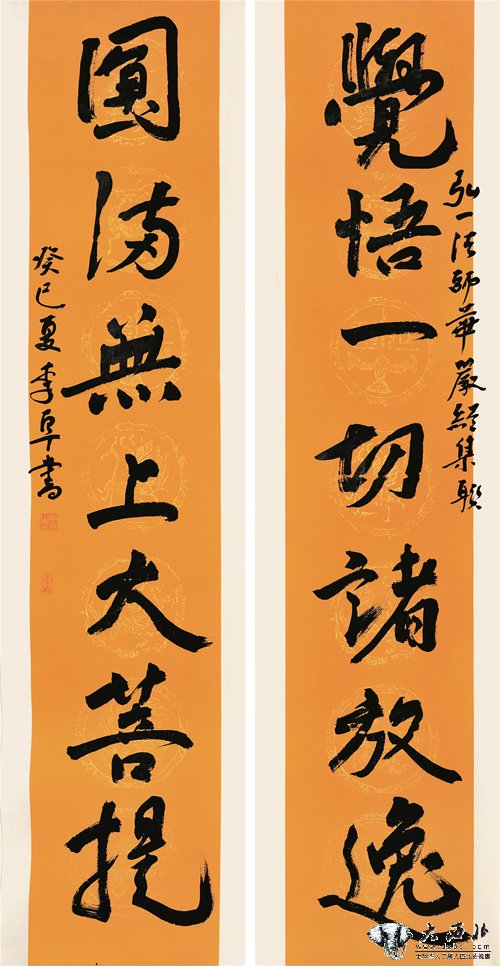 覺悟一切諸放逸
弘一法師華嚴經集聯
圓滿無上大菩提
癸巳夏季阜書
大西北